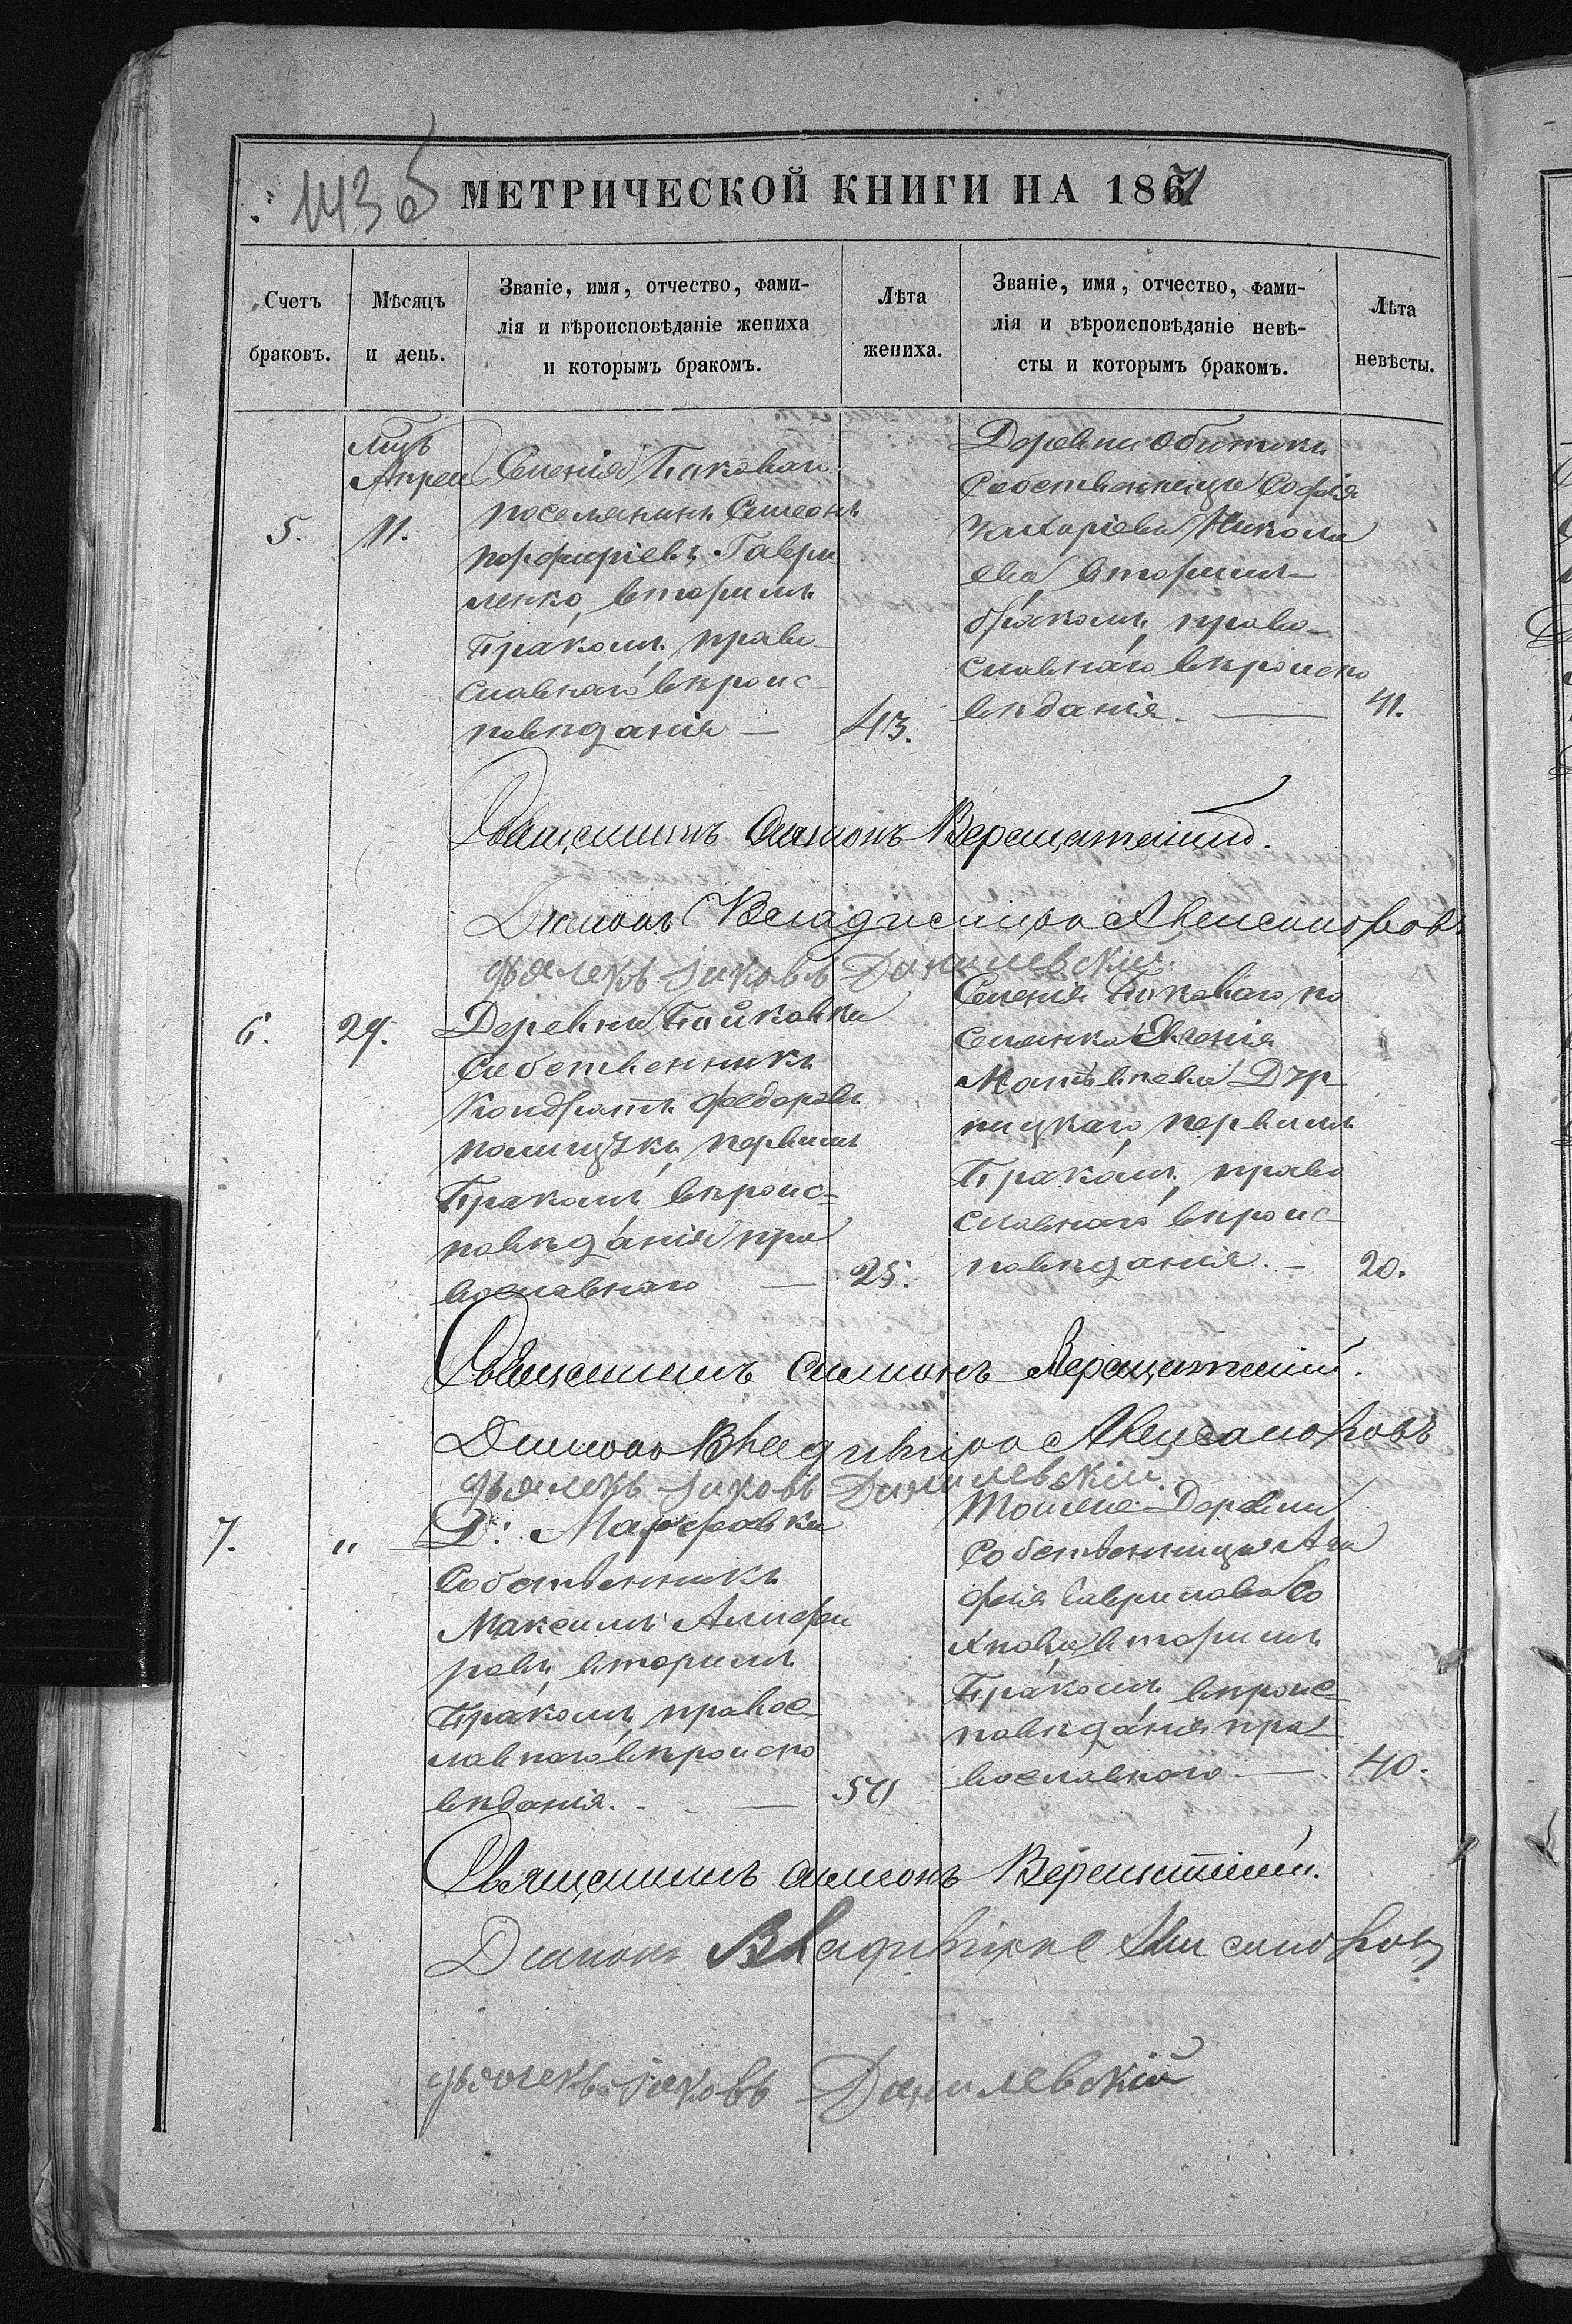 143 об
МЕТРИЧЕСКОЙ КНИГИ НА 1871
Счетъ браковъ.
Мѣсяцъ и день.
Званіе, имя, отчество, фами-
лія и вѣроисповѣданіе жениха
и которымъ бракомъ.
Лѣта жениха.
Званіе, имя, отчество, фами-
лія и вѣроисповѣданіе невѣ-
сты и которымъ бракомъ.
Лѣта невѣсты.
5.
Апрел
11.
Селенія Баковаго
поселянинъ Симеонъ
Порфиріевъ Гаври
ленко, вторымъ
бракомъ, право-
славнаго вѣроис-
повѣданія —
43.
Деревни Обиток
Собственница Софія
Захаріева Никола
ева, вторымъ
бракомъ, право-
славнаго вѣроиспо
вѣданія. —
41.
Священникъ Симонъ Верещатскій.
Діаконъ Владиміръ Александровъ
дьячекъ Іаковъ Данилевскій.
6.
29.
Деревни Байковки
Собственникъ
Кондратъ Федоровъ
первымъ
бракомъ, вѣроис-
повѣданія пра
вославнаго —
25.
Селенія Баковаго по
селянка Евгенія
Матвѣева
первымъ
бракомъ, право
славнаго вѣроис-
повѣданія. —
20.
Священникъ Симонъ Верещатскій.
Діаконъ Владиміръ Александровъ
дьячекъ Іаковъ Данилевскій.
7.
"
Д: Марфовки
Собственникъ
Максимъ Алифи
ровъ, вторымъ
бракомъ, правос-
лавнаго вѣроиспо
вѣданія. —
50
Тойже Деревни
Собственница Ага
фія Гаврилова Со
хнова вторымъ
бракомъ, вѣроис-
повѣданія пра
вославнаго —
40.
Священникъ Симонъ Верещатскій.
Діаконъ Владиміръ Александровъ
дьячекъ Іаковъ Данилевскій